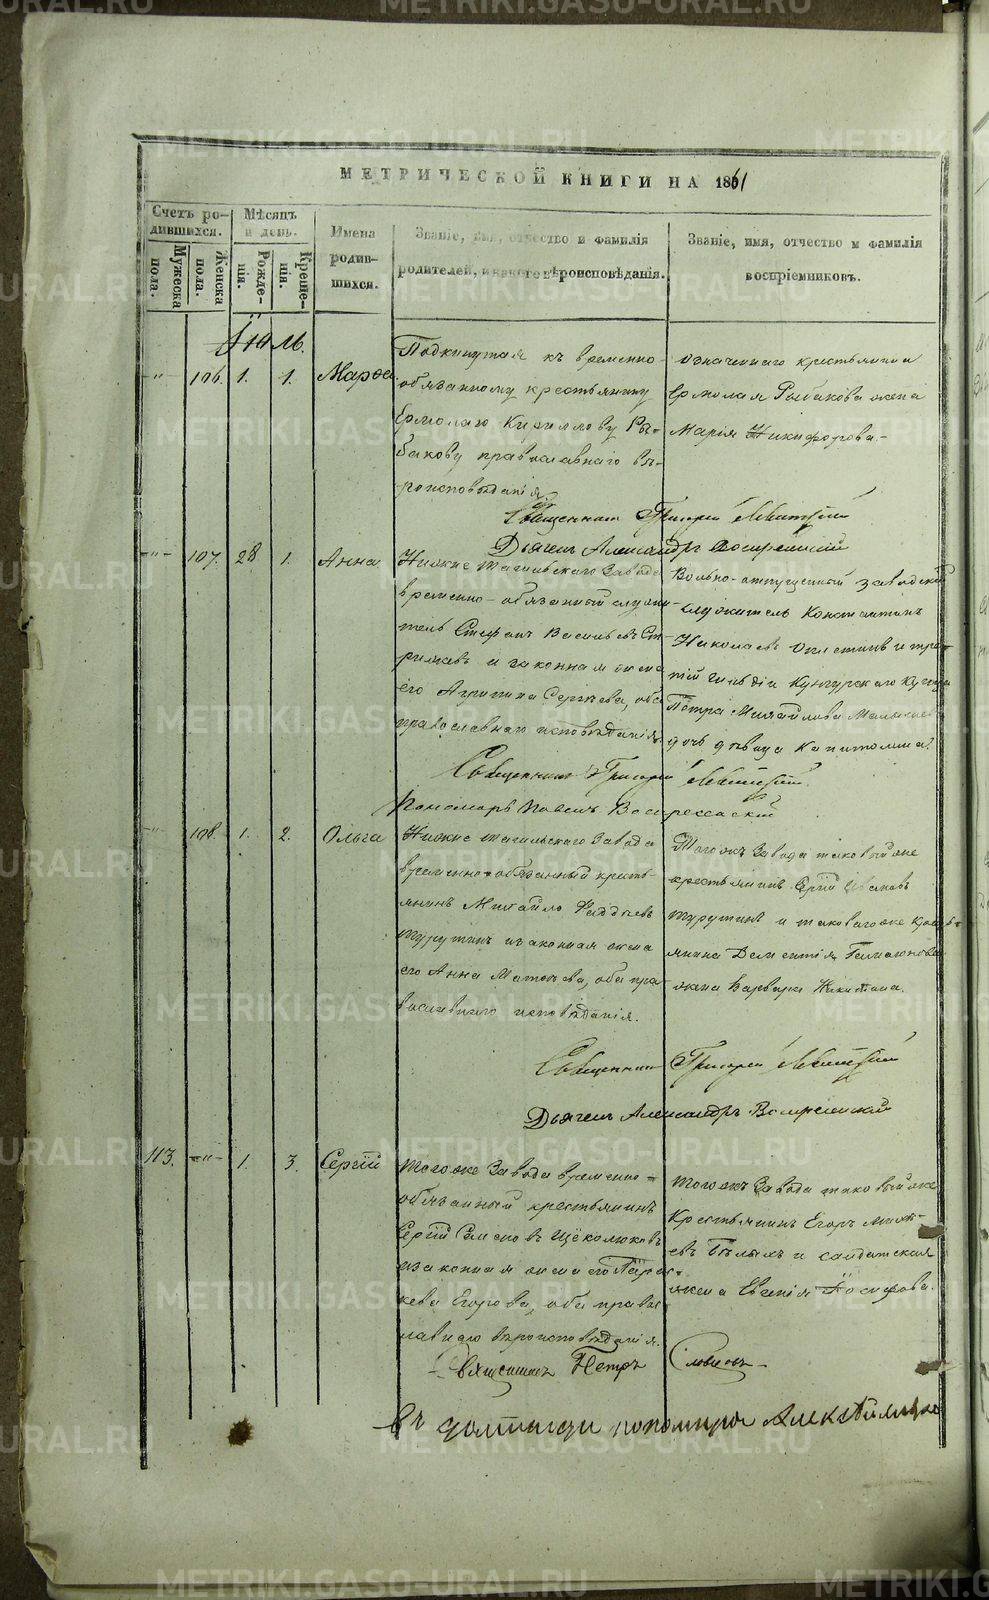 МЕТРИЧЕСКОЙ КНИГИ НА 1861
Счетъ ро-
дившихся.
Мужеска
пола.
Женска
пола.
Мѣсяцъ
и день.
Рожде-
нія.
Креще-
нія.
Имена
родив-
шихся.
Званіе, имя, отчество и фамилія
родителей, и какого вѣроисповѣданія.
Званіе, имя, отчество и фамилія
воспріемниковъ.
Іюль.
-"- 106. 1. 1. Марѳа
Подкинутая къ временно-
обязанному крестьянину
Ермолаю Кириллову Ры-
бакову православнаго вѣ-
роисповѣданія.
означеннаго крестьянина
Ермолая Рыбакова жена
Марія Никифорова.-
Священникъ Григорій Левитскій
Дьячекъ Александръ Воскресенскій
-"- 107. 28 1. Анна
Нижне Тагильскаго Завода
временно-обязанный служи-
тель Стефанъ Васильевъ Ст-
рижевъ и законная жена
его Агрипина Сергѣева, оба
православнаго исповѣданія.
Вольно-отпущенный заводской
служитель Константинъ
Николаевъ и тре-
тій гильдіи Кунгурскаго Купца
Петра Михайлова
дочь дѣвица Капитолина.
Священникъ Григорій Левитскій
Пономарь Павелъ Воскресенскій
-"- 108. 1. 2. Ольга
Нижне Тагильскаго Завода
временно-обязанный кресть-
янинъ Михайло Фаддѣевъ
Турутинъ и законная жена
его Анна Матвѣева, оба пра-
вославнаго исповѣданія.
Того жъ Завода таковый же
крестьянинъ Сергій Ивановъ
Турутинъ и таковаго же крест-
янина Дементія
жена Варвара Никитина.
Священникъ Григорій Левитскій
Дьячекъ Александръ Воскресенскій
113. -"- 1. 3. Сергій
Того же Завода временно-
обязанный крестьянинъ
Сергій Семеновъ Щеколюковъ
и законная жена его Парас-
кева Егорова, оба правос-
лавнаго вѣроисповѣданія.
Того жъ Завода таковый же
Крестьянинъ Егоръ
евъ Бѣлыхъ и солдатская
жена Евгенія Іосифова.
Священникъ Петръ Словцовъ
въ должности пономаря
METRIKI.GASO-URAL.RU